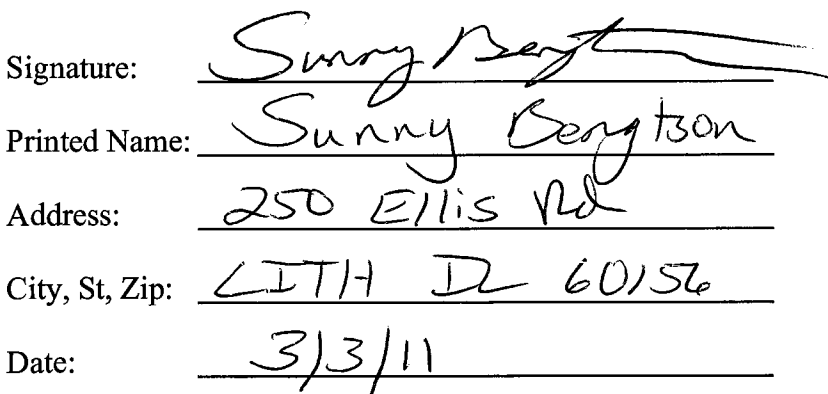 Signature: Sunny Bengt
Printed Name: Sunny Bengtson
Address: 250 Ellis Rd
City, St, Zip: LITH IL 60156
Date: 3/3/11